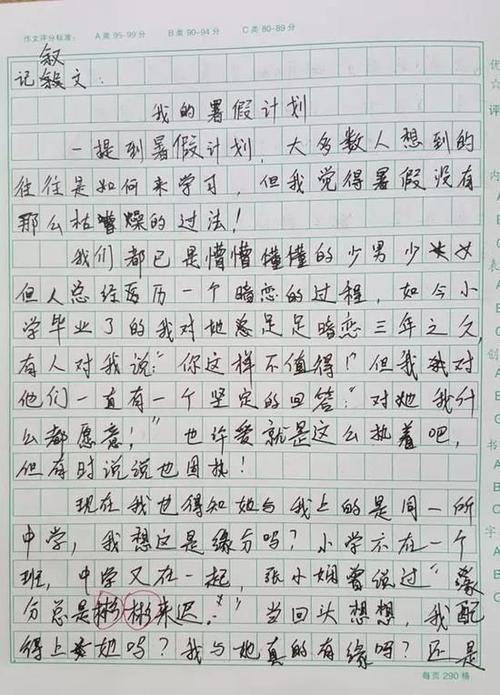 作文评分标准： A类 95-99分 B类 90-94分 C类 80-89分
叙
记 文：
我的暑假计划
一提到暑假计划，大多数人想到的
往往是如何来学习，但我觉得暑假没有
那么枯燥的过法！
我们都已是懵懵懂懂的少男少女
但人总经历一个暗恋的过程，如今小
学毕业了的我对她足足暗恋三年之久
有人对我说：“你这样不值得！”但我对
他们一直有一个坚定的回答：“对她我什
么都愿意！”也许爱就是这么执着吧，
但有时说说也固执！
现在我也得知她与我上的是同一所
中学，我想这是缘分吗？小学不在一个
班，中学又在一起，张小娴曾说过“缘
分总是彬彬来迟。”当回头想想，我配
得上她吗？我与她真的有缘吗？还是
每页290格
优
☆
评
内
A
B
C
表
A
B
C
创
A
B
C
字